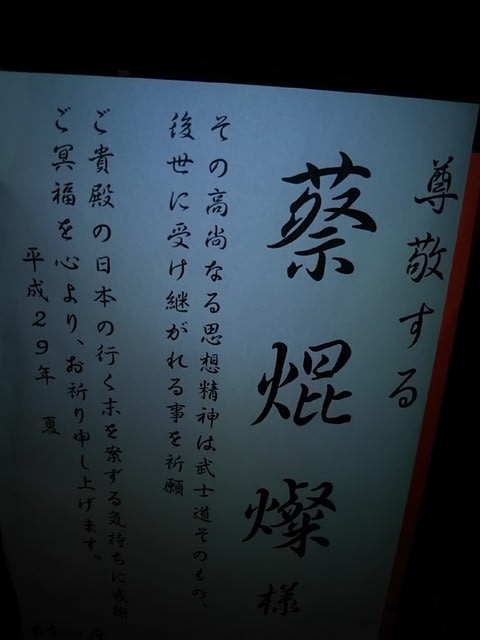 尊敬する
蔡焜燦様
その高尚なる思想精神は武士道そのもの、
後世に受け継がれる事を祈願
ご貴殿の日本の行く末を案ずる気持ちに感謝
ご冥福を心より、お祈り申し上げます。
平成29年 夏